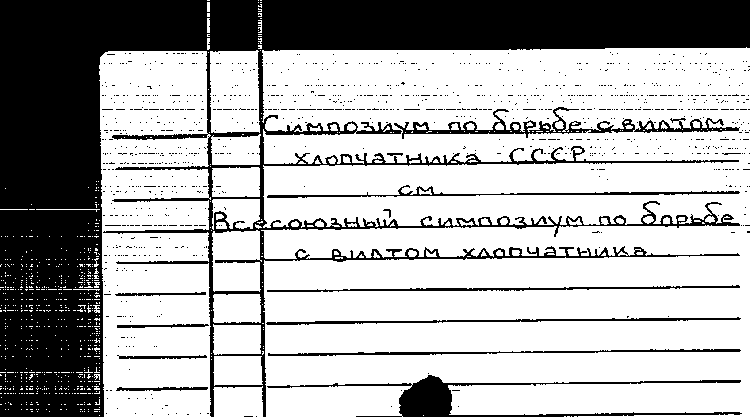 Симпозиум по борьбе с вилтом
хлопчатника СССР
см.
Всесоюзный симпозиум по борьбе
с вилтом хлопчатника.